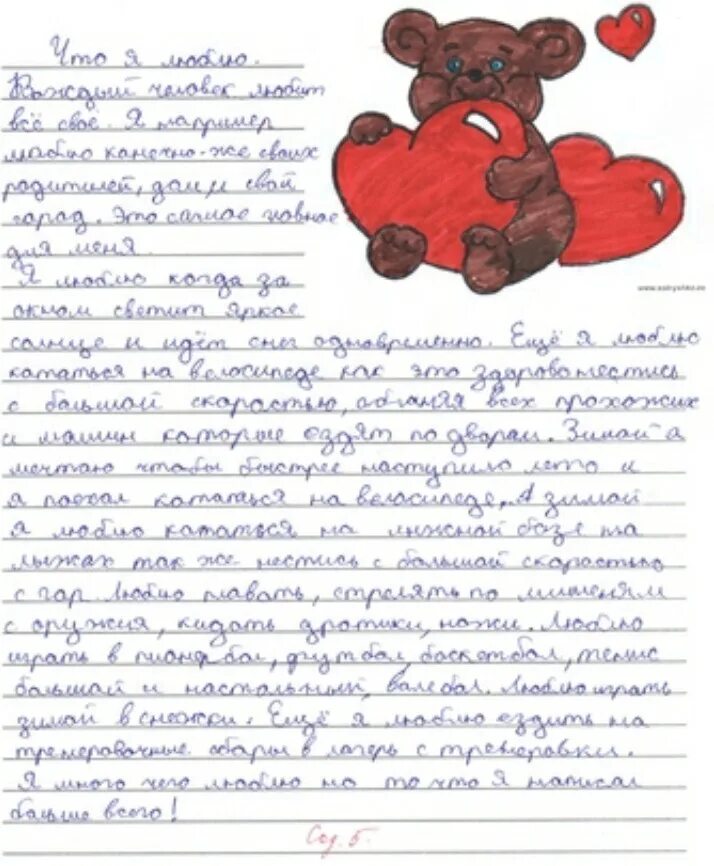 Что я люблю.
Каждый человек любит
всё своё. Я например
люблю канечно-же своих
родитилей, дом и свай
горад. Это самое главное
для меня.
Я люблю когда за
окном светит яркое
www.sonyahka.ee
солнце и идёт снег одновременно. Ещё я люблю
кататься на велосипеде как это здорово нестись
с большой скарастью, обганяя всех прохожих
и машин каторые ездят по дворам. Зимай я
мечтаю чтобы быстрее наступило лето и
я поехал кататься на велосипеде. А зимой
я люблю кататься на лыжной базе на
лыжах так же нестись с большой скарастью
с гор. Люблю плавать, стрелять по мишеням
с оружия, кидать дротики, ножи. Люблю
играть в пианербол, футбол, баскетбол, тенис
большай и настальный, валебол. Люблю играть
зимой в снежки. Ещё я люблю ездить на
тренеровочные сборы в лагерь с тренеровки.
Я много чего люблю но то что я написал
больше всего!
Сод. 5.